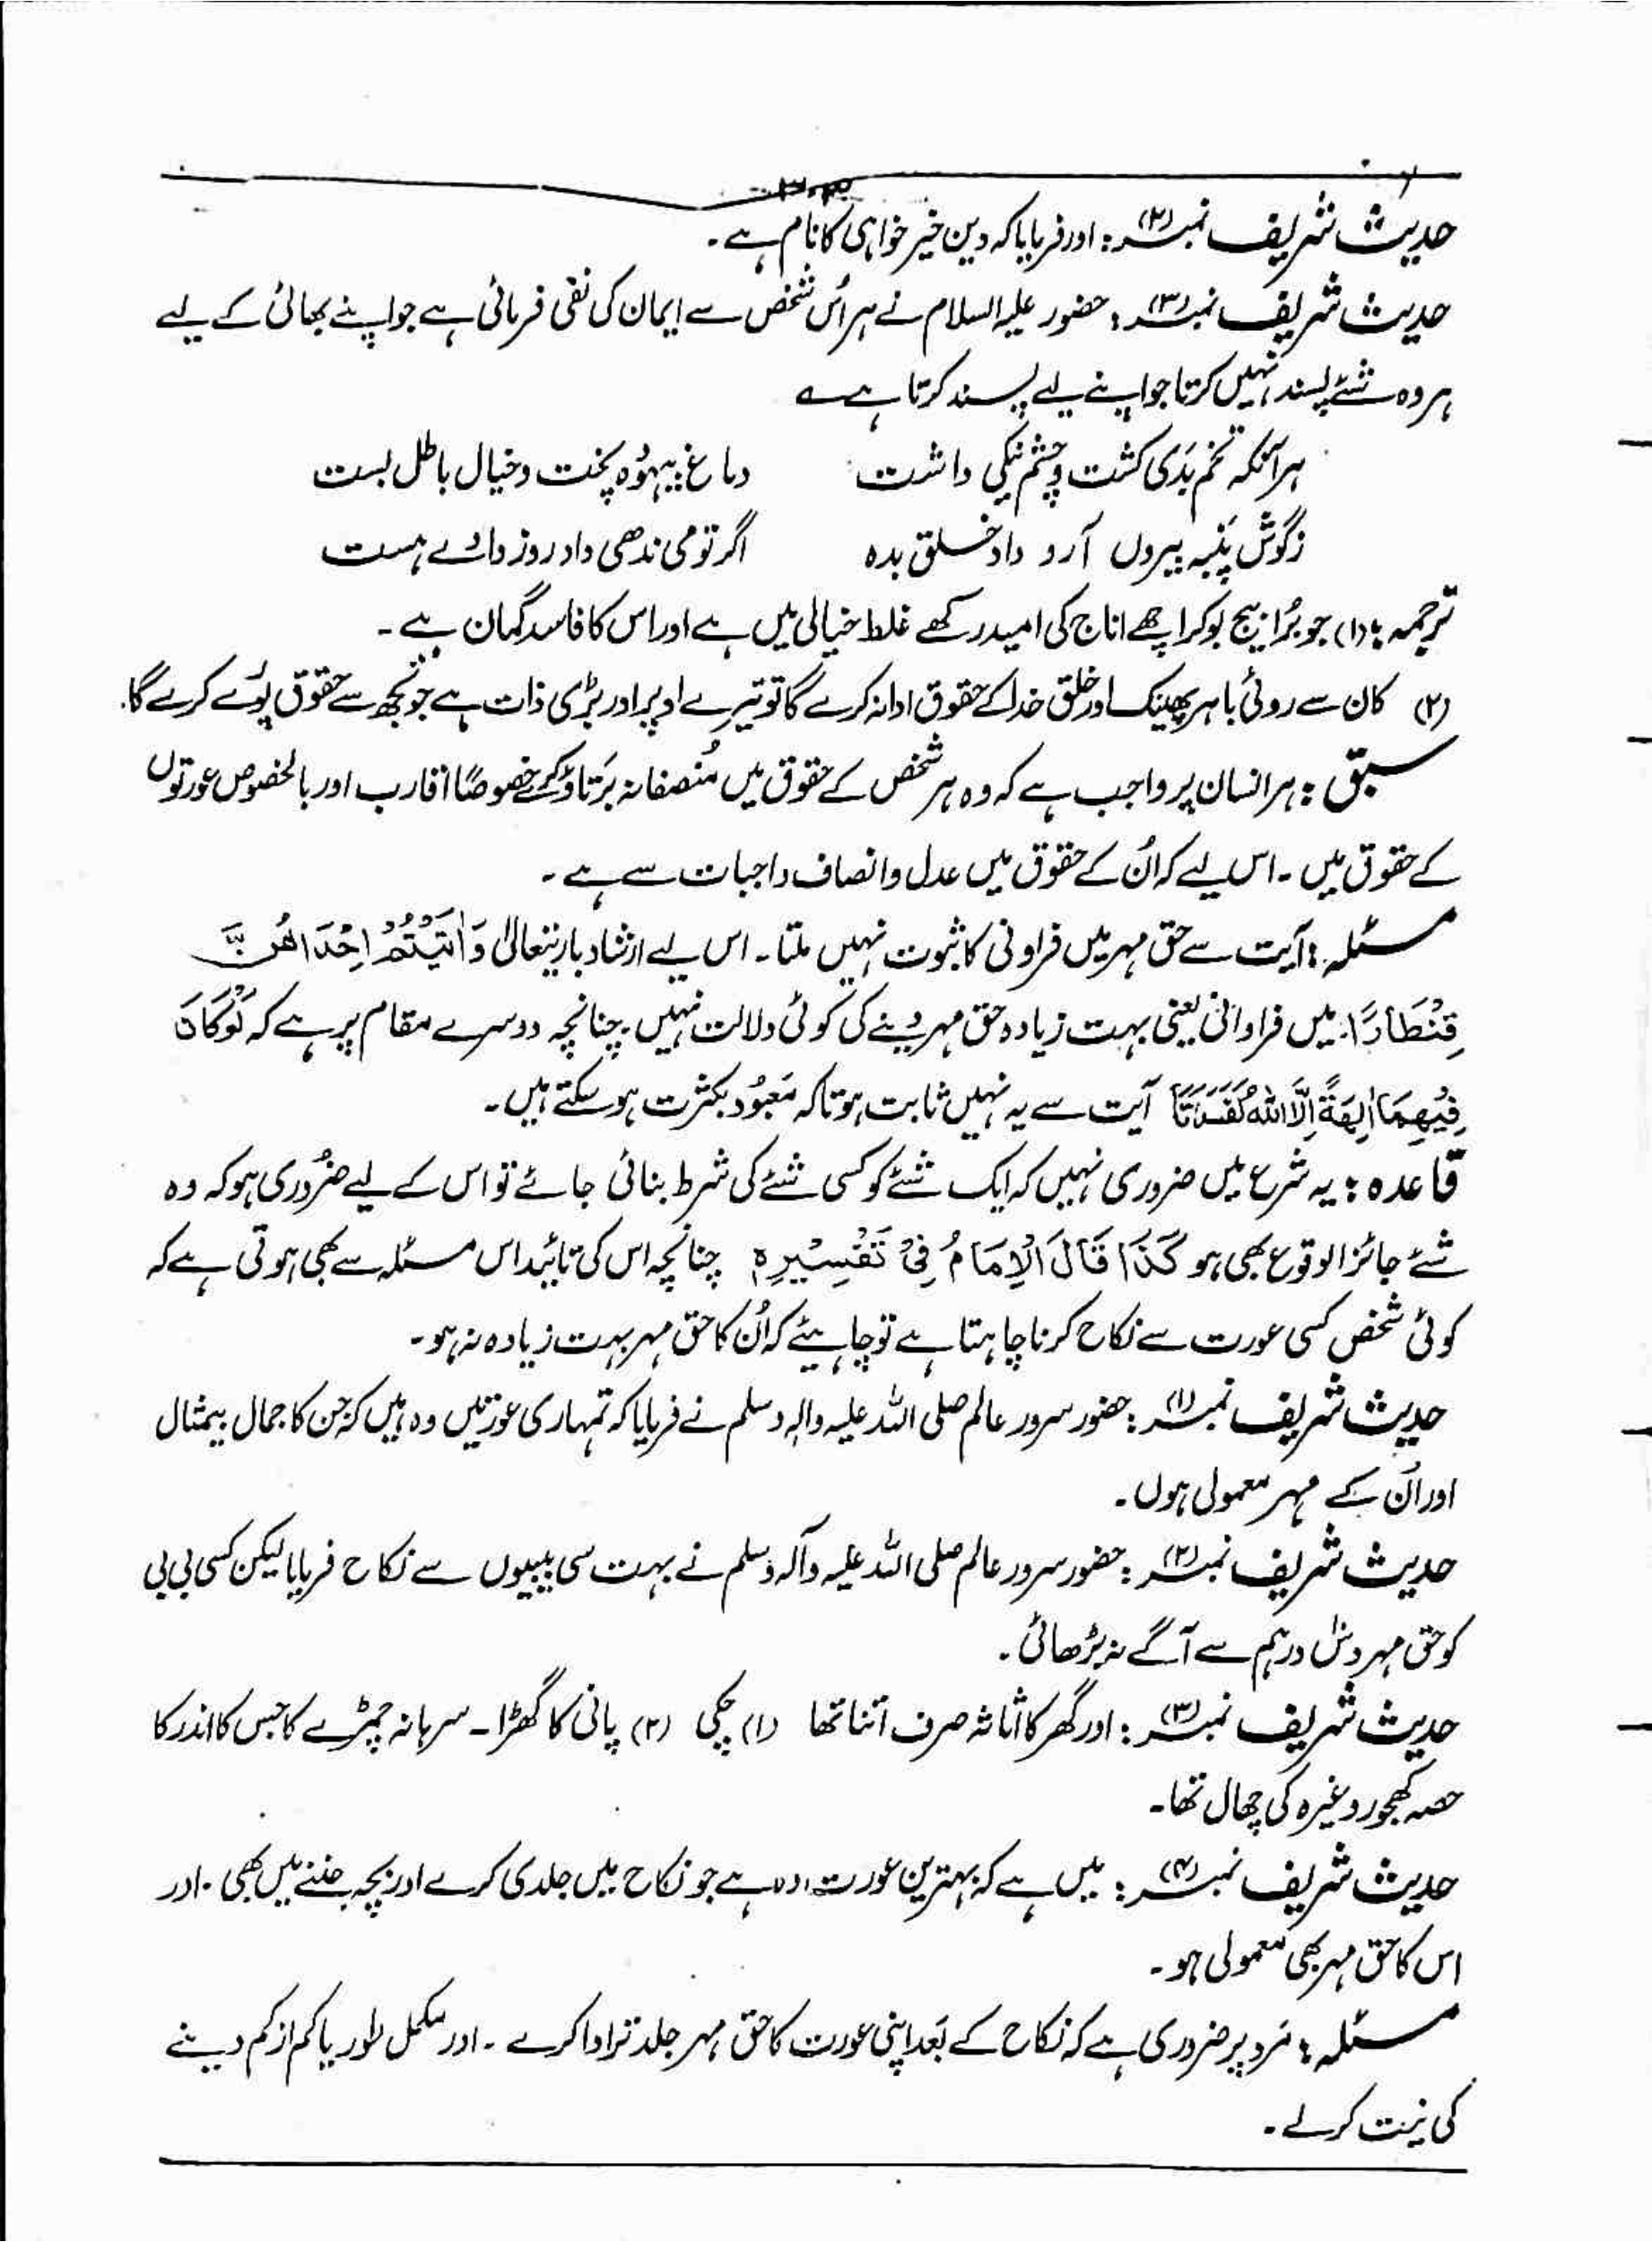 ۳۰۳
حدیث شریف نمبر (۲): اور فرمایا کہ دین خیر خواہی کا نام ہے۔
حدیث شریف نمبر (۳): حضور علیہ السلام نے ہر اُس شخص سے ایمان کی نفی فرمائی ہے جو اپنے بھائی کے لیے
ہر وہ شئے پسند نہیں کرتا جو اپنے لیے پسند کرتا ہے ؎
ہر آنکہ تخم بَدی کشت و چشم نیکی داشت دماغ بیہوُدہ پخت و خیال باطل بست
زگوش پَنبہ بیروں آر و داد خلق بدہ اگر تو می ندھی داد روز دادے ہست
ترجمہ: (۱) جو بُرا بیج بو کر اچھے اناج کی امید رکھے غلط خیالی میں ہے اور اس کا فاسد گمان ہے۔
(۲) کان سے روئی باہر پھینک اور خلق خدا کے حقوق ادا نہ کرے گا تو تیرے اوپر اور بڑی ذات ہے جو تجھ سے حقوق پوُرے کرے گا۔
سبق: ہر انسان پر واجب ہے کہ وہ ہر شخص کے حقوق میں مُنصفانہ بَرتاؤ کرے خصوصًا اقارب اور بالخصوص عورتوں
کے حقوق میں۔ اس لیے کہ اُن کے حقوق میں عدل و انصاف واجبات سے ہے۔
مسئلہ: آیت سے حق مہر میں فراونی کا ثبوت نہیں ملتا۔ اس لیے ارشاد باریتعالیٰ وَاٰتَیْتُمْ اِحْدَاھُنَّ
قِنْطَارًا۔ میں فراوانی یعنی بہت زیادہ حق مہر دینے کی کوئی دلالت نہیں۔ چنانچہ دوسرے مقام پر ہے کہ لَوْکَانَ
فِیْھِمَا اٰلِھَۃً اِلَّا اللہُ لَفَسَدَتَا آیت سے یہ نہیں ثابت ہوتا کہ مَعبوُد بکثرت ہو سکتے ہیں۔
قاعدہ: یہ شرع میں ضروری نہیں کہ ایک شئے کو کسی شئے کی شرط بنائی جائے تو اس کے لیے ضرُوری ہو کہ وہ
شئے جائز الوقوع بھی ہو کَذَا قَالَ الْاِمَامُ فِیْ تَفْسِیْرِہٖ چنانچہ اس کی تائید اس مسئلہ سے بھی ہوتی ہے کہ
کوئی شخص کسی عورت سے نکاح کرنا چاہتا ہے تو چاہیئے کہ اُن کا حق مہر بہت زیادہ نہ ہو۔
حدیث شریف نمبر (۱): حضور سرور عالم صلی اللہ علیہ والہٖ وسلم نے فرمایا کہ تمہاری عورتیں وہ ہیں کہ جن کا جمال بیمثال
اور اُن کے مہر معمولی ہوں۔
حدیث شریف نمبر (۲): حضور سرور عالم صلی اللہ علیہ وآلہٖ وسلم نے بہت سی بیبیوں سے نکاح فرمایا لیکن کسی بی بی
کو حق مہر دس درہم سے آگے نہ بڑھائی۔
حدیث شریف نمبر (۳): اور گھر کا اثاثہ صرف اتنا تھا (۱) چکی (۲) پانی کا گھڑا۔ سرہانہ چمڑے کا جس کا اندر کا
حصہ کھجور وغیرہ کی چھال تھا۔
حدیث شریف نمبر (۴): میں ہے کہ بہترین عورت وہ ہے جو نکاح میں جلدی کرے اور بچہ جننے میں بھی۔ اور
اس کا حق مہر بھی معمولی ہو۔
مسئلہ: مَرد پر ضروری ہے کہ نکاح کے بَعد اپنی عورت کا حق مہر جلد تر ادا کرے۔ اور مکمل طور یا کم از کم دینے
کی نیت کر لے۔